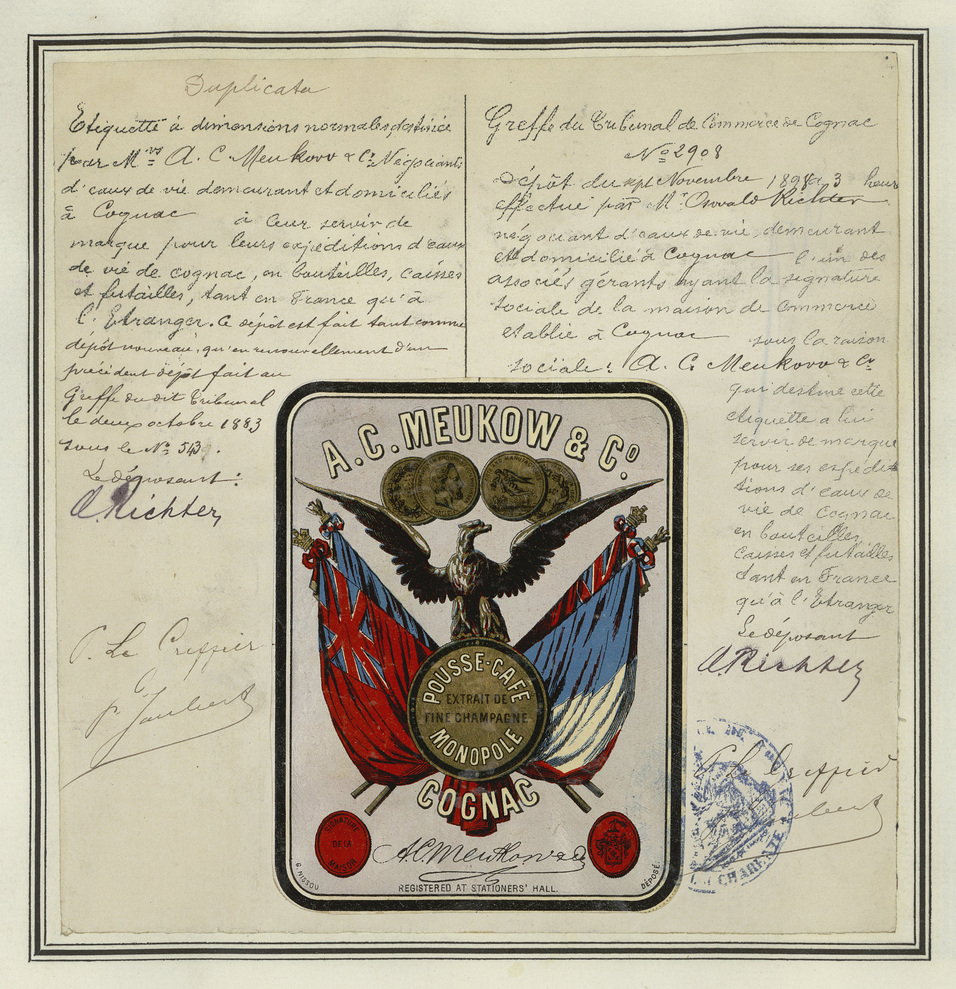 Duplicata
Etiquette à dimensions normales, destinée
par M.rs A. C. Meukow & Cº Négociants
d'eaux de vie demeurant et domiciliés
à Cognac à leur servir de
marque pour leurs expéditions d'eaux
de vie de cognac, en bouteilles, caisses
et futailles, tant en France qu'à
l'Etranger. Ce dépôt est fait tant comme
dépôt nouveau, qu'en renouvellement d'un
précédent dépôt fait au
Greffe du dit Tribunal
le deux octobre 1883
sous le Nº 543.
Le déposant:
O. Richter
P. Le Greffier
Greffe du Tribunal de Commerce de Cognac
Nº 2908
Dépôt du sept Novembre 1898 à 3 heures
effectué par Mr. Oswald Richter
négociant d'eaux de vie, demeurant
et domicilié à Cognac l'un des
associés gérants ayant la signature
sociale de la maison de Commerce
établie à Cognac sous la raison
sociale: A. C. Meukow & Cº
qui destine cette
étiquette à lui
servir de marque
pour ses expédi-
tions d'eaux de
vie de Cognac
en bouteilles,
caisses et futailles
tant en France
qu'à l'Etranger
Le déposant
O. Richter
P. Le Greffier
A. C. MEUKOW & Cº
POUSSE-CAFE
EXTRAIT DE
FINE CHAMPAGNE
MONOPOLE
COGNAC
SIGNATURE
DE LA
MAISON
A.C. Meukow & Co
G. NISSOU
REGISTERED AT STATIONERS' HALL.
DÉPOSÉ.
CHARENTE